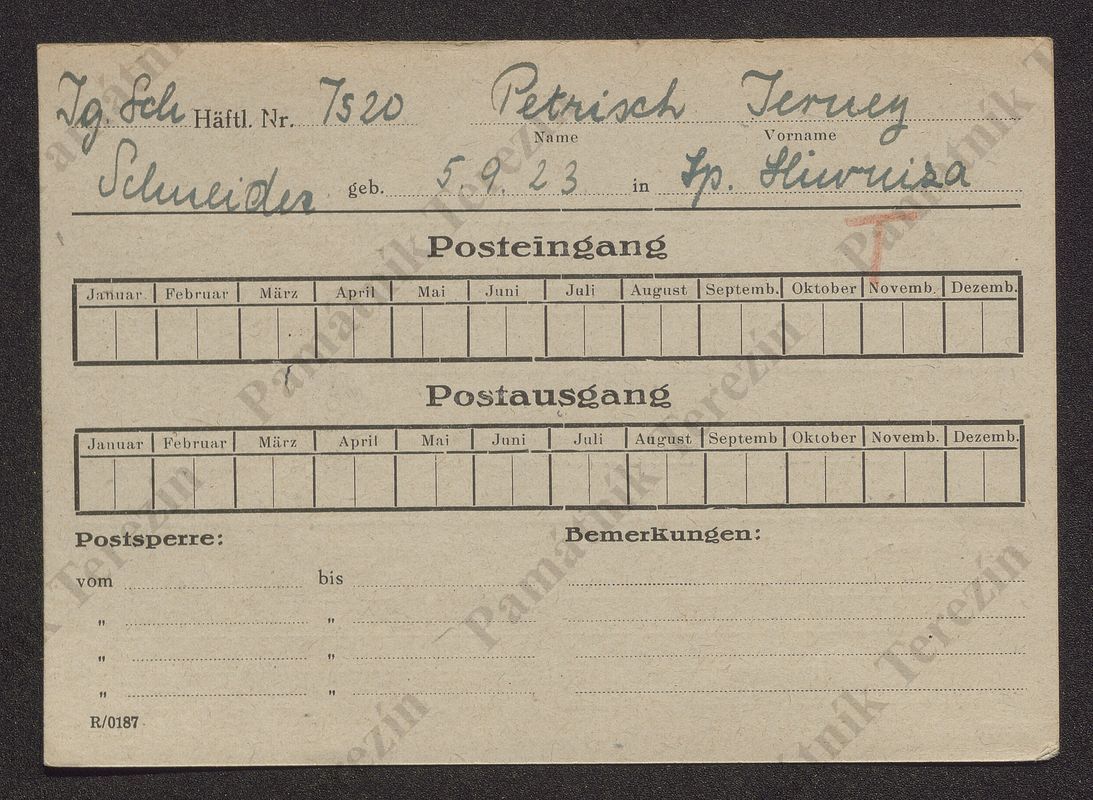 Jg. Sch Häftl. Nr. 7520 Petrisch Jerney
Name Vorname
Schneider geb. 5. 9. 23 in Sp. Sliwniza
T
Posteingang
Januar Februar März April Mai Juni Juli August Septemb. Oktober Novemb. Dezemb.
Postausgang
Januar Februar März April Mai Juni Juli August Septemb Oktober Novemb. Dezemb.
Postsperre: Bemerkungen:
vom bis
" "
" "
" "
R/0187
Památník Terezín